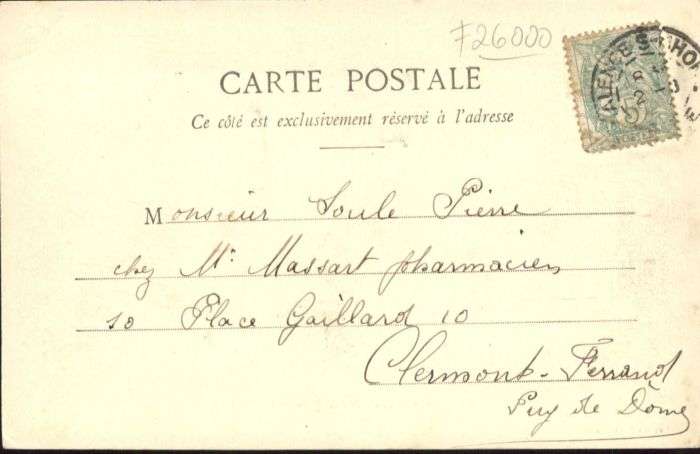 F26000
CARTE POSTALE
Ce côté est exclusivement réservé à l'adresse
Monsieur Soule Pierre
chez Mr Massart pharmacien
10 Place Gaillard 10
Clermont-Ferrand
Puy de Dôme